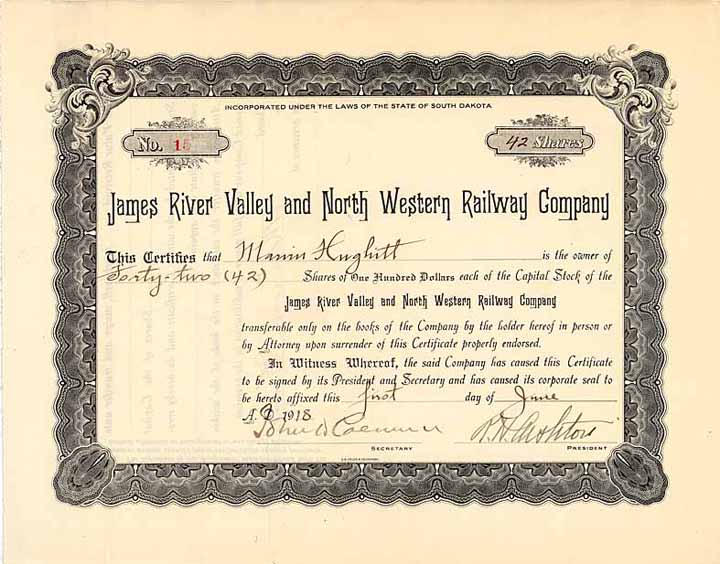 INCORPORATED UNDER THE LAWS OF THE STATE OF SOUTH DAKOTA
No. 15
42 Shares
James River Valley and North Western Railway Company
This Certifies that Marvin Hughitt is the owner of
Forty-two (42) Shares of One Hundred Dollars each of the Capital Stock of the
James River Valley and North Western Railway Company
transferable only on the books of the Company by the holder hereof in person or
by Attorney upon surrender of this Certificate properly endorsed.
In Witness Whereof, the said Company has caused this Certificate
to be signed by its President and Secretary and has caused its corporate seal to
be hereto affixed this first day of June
A.D. 1918
John D
SECRETARY
PRESIDENT